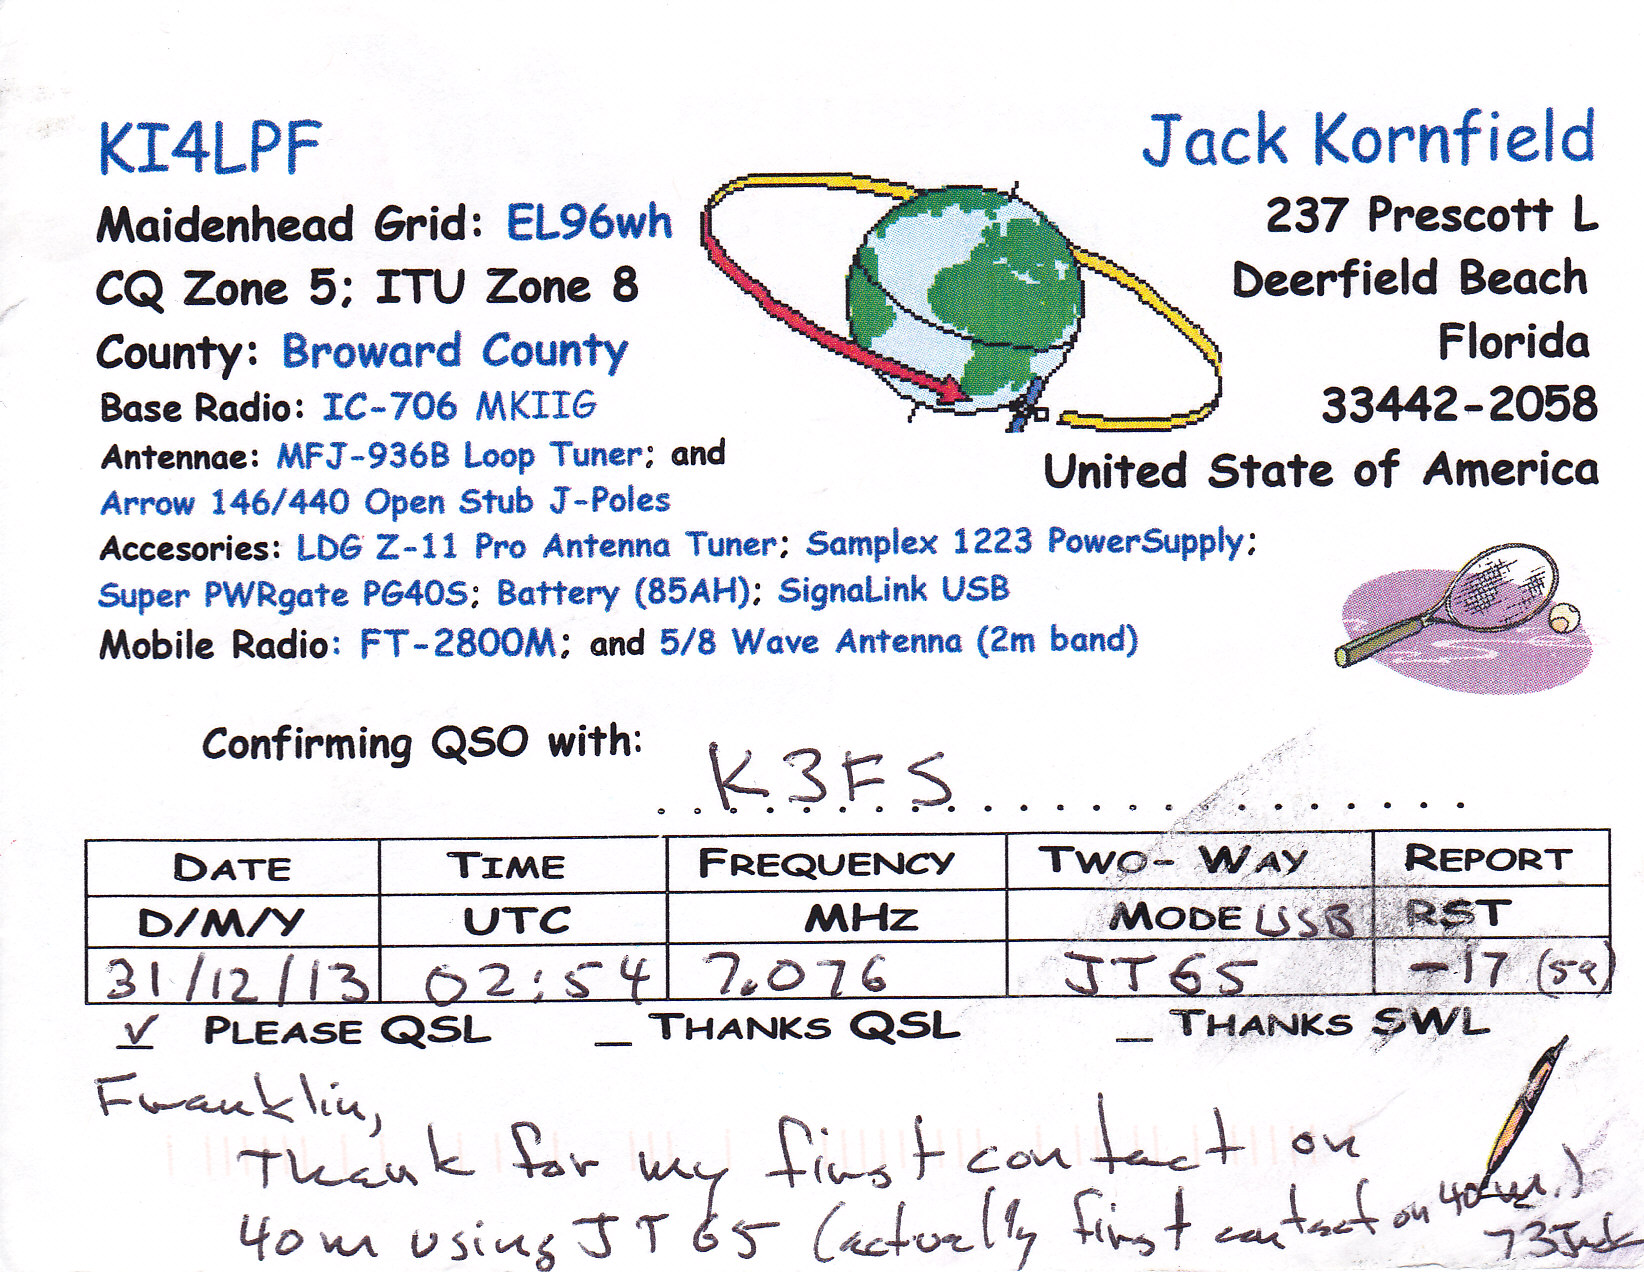 KI4LPF
Jack Kornfield
Maidenhead Grid: EL96wh
237 Prescott L
CQ Zone 5; ITU Zone 8
Deerfield Beach
County: Broward County
Florida
Base Radio: IC-706 MKIIG
33442-2058
Antennae: MFJ-936B Loop Tuner; and
United State of America
Arrow 146/440 Open Stub J-Poles
Accesories: LDG Z-11 Pro Antenna Tuner; Samplex 1223 PowerSupply;
Super PWRgate PG40S; Battery (85AH); SignaLink USB
Mobile Radio: FT-2800M; and 5/8 Wave Antenna (2m band)
Confirming QSO with: K3FS
DATE TIME FREQUENCY TWO-WAY REPORT
D/M/Y UTC MHZ MODE USB RST
31/12/13 02:54 7.076 JT65 -17 (59)
✓ PLEASE QSL _ THANKS QSL _ THANKS SWL
Franklin,
Thank for my first contact on
40m using JT65 (actually first contact on 40m.)
73 Jack